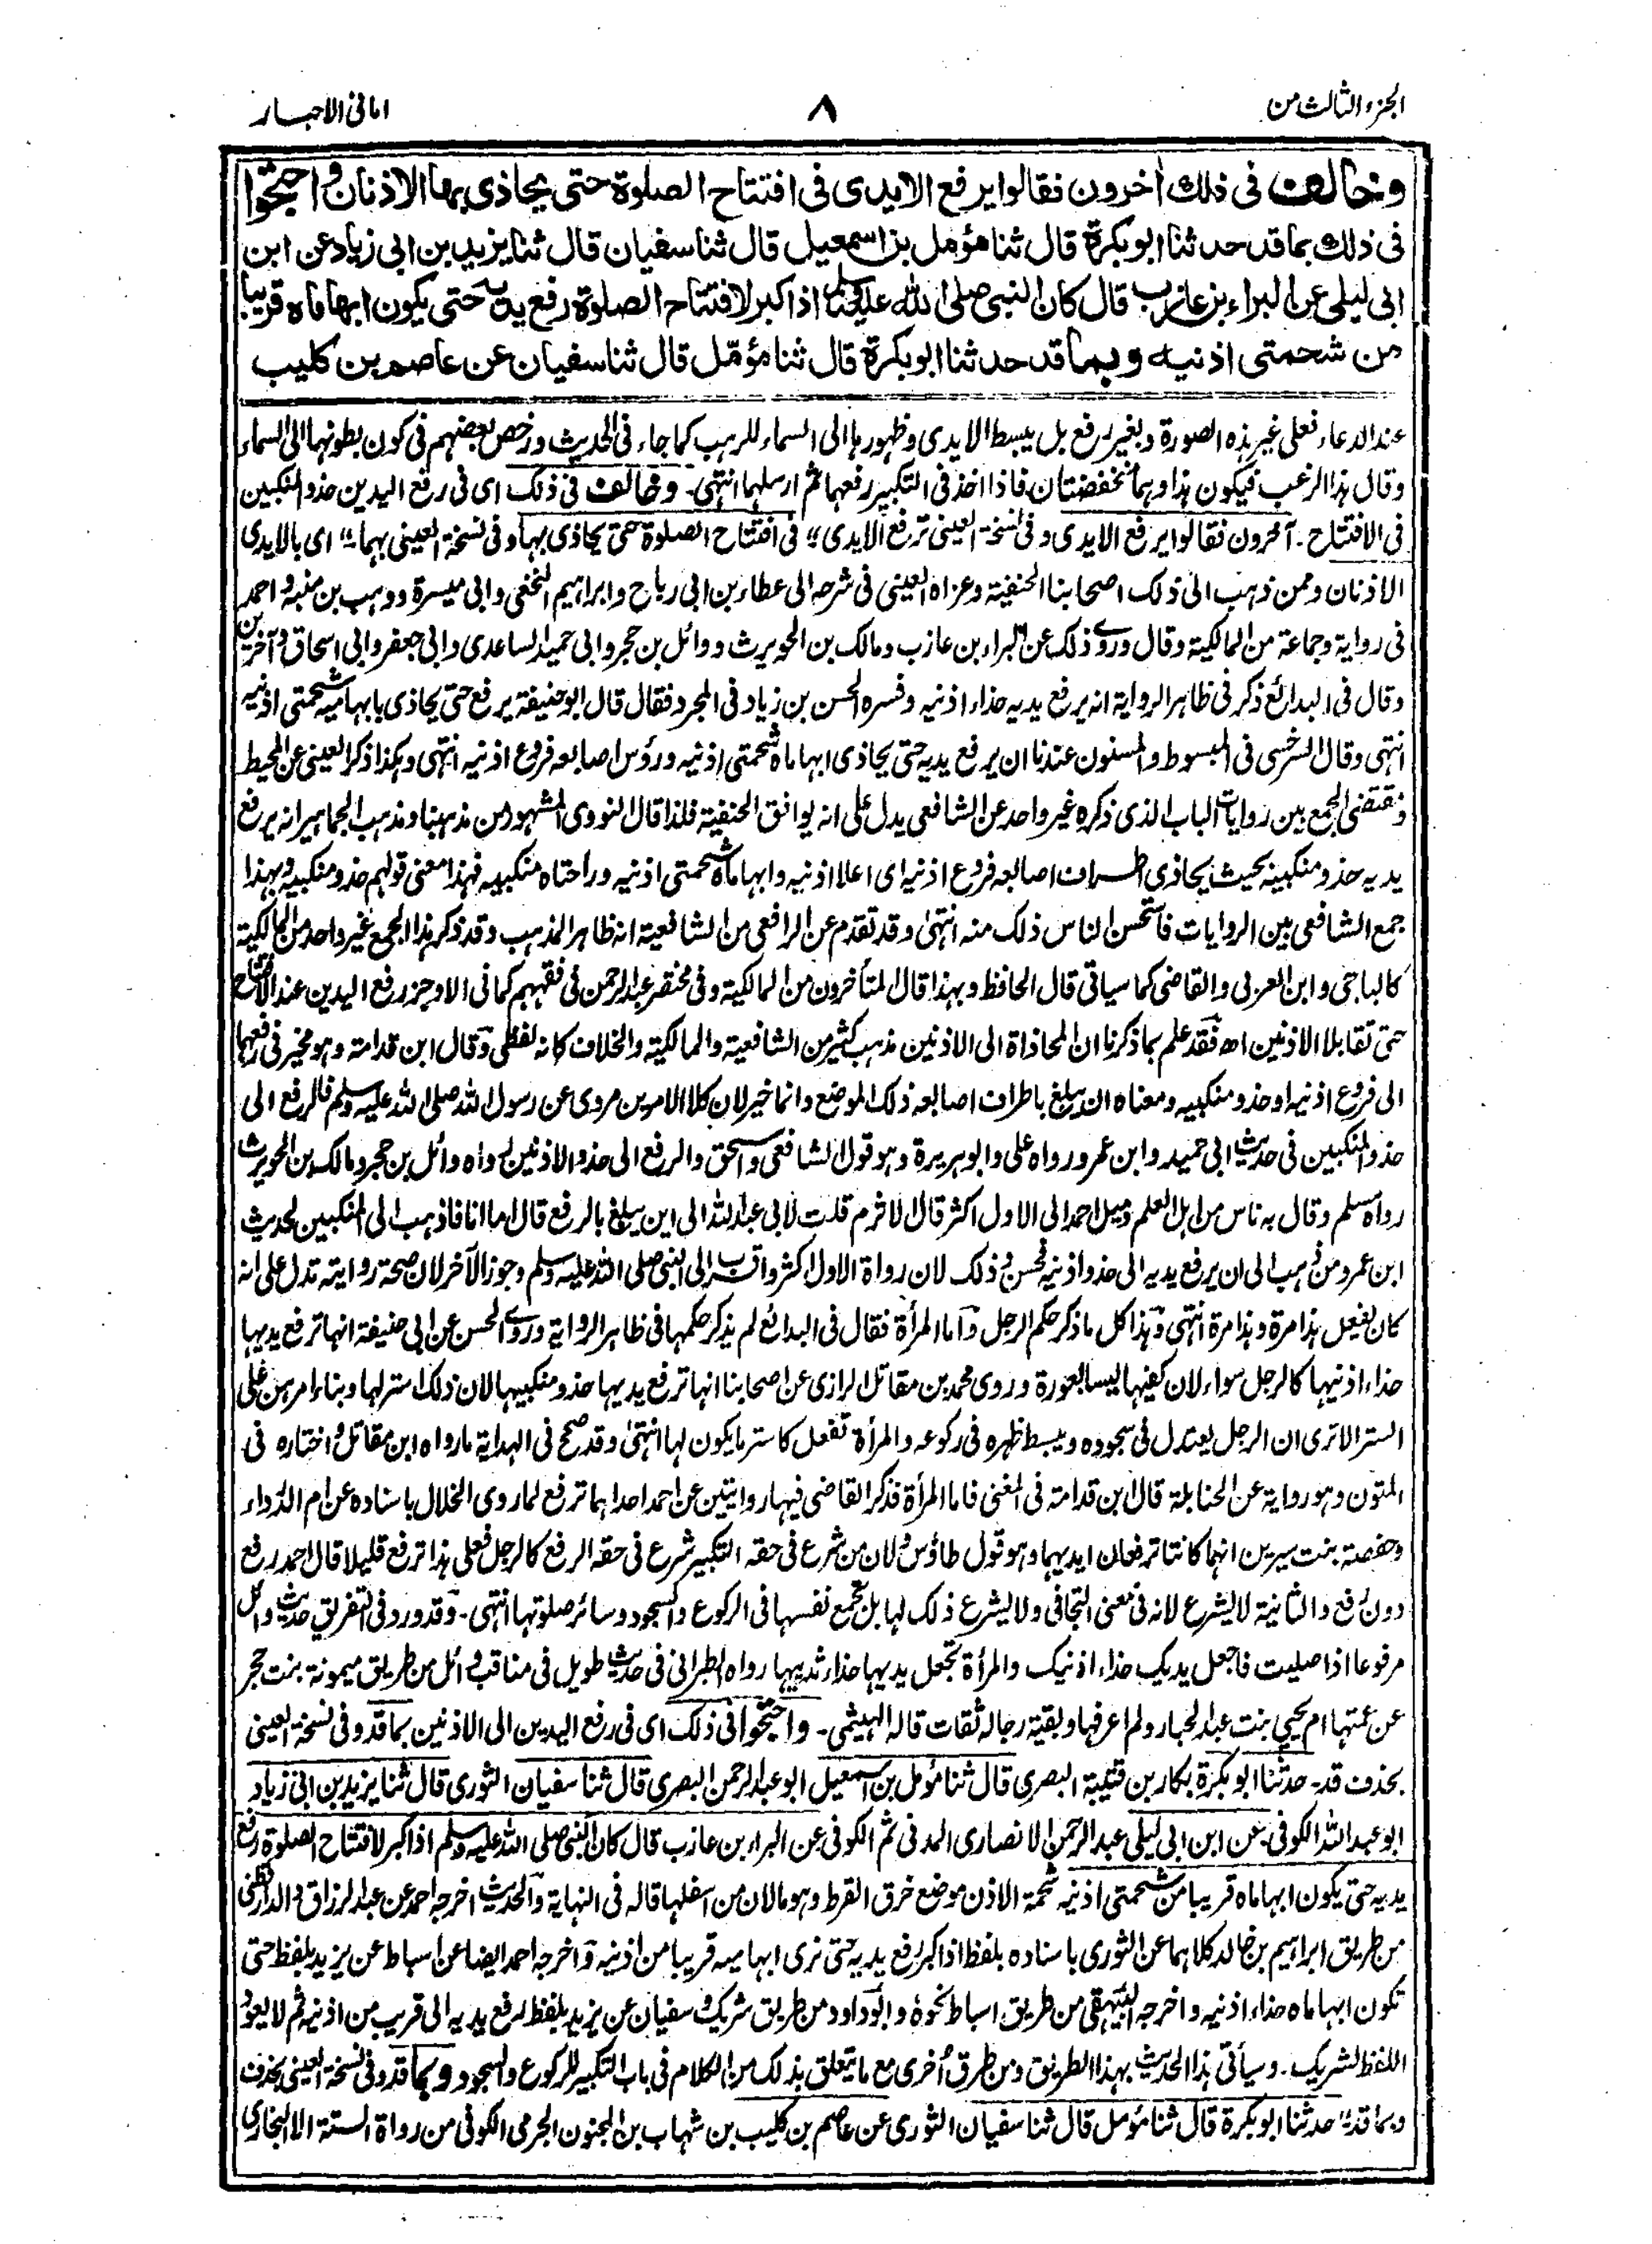 الجزء الثالث من
٨
امانی الاحبار
وخالف فی ذلك اخرون فقالوا يرفع الايدی فی افتتاح الصلوة حتی يحاذی بها الاذنان واحتجوا
فی ذلك بما قد حدثنا ابو بكرة قال ثنا مؤمل بن اسمعيل قال ثنا سفيان قال ثنا يزيد بن ابی زياد عن ابن
ابی ليلی عن البراء بن عازب قال كان النبی صلی الله عليه وسلم اذا كبر لافتتاح الصلوة رفع يديه حتی يكون ابهاماه قريبا
من شحمتی اذنيه وبما قد حدثنا ابو بكرة قال ثنا مؤمّل قال ثنا سفيان عن عاصم بن كليب
عند الدعاء فعلی غير هذه الصورة وبغير رفع بل يبسط الايدی وظهورها الی السماء للرهب كما جاء فی الحديث ورخص بعضهم فی كون بطونها الی السماء
وقال هذا الرغب فيكون هذا وهما منخفضتان فاذا اخذ فی التكبير رفعهما ثم ارسلهما انتهی۔ وخالف فی ذلك ای فی رفع اليدين حذو المنكبين
فی الافتتاح۔ آخرون فقالوا يرفع الايدی وفی نسخة العينی ترفع الايدی؛؛ فی افتتاح الصلوة حتی يحاذی بها وفی نسخة العينی بهما؛؛ ای بالايدی
الاذنان وممن ذهب الی ذلك اصحابنا الحنفية وعزاه العينی فی شرحه الی عطاء بن ابی رباح وابراهيم النخعی وابی ميسرة ووهب بن منبه واحمد
فی رواية وجماعة من المالكية وقال وروی ذلك عن البراء بن عازب ومالك بن الحويرث ووائل بن حجر وابی حميد الساعدی وابی جعفر وابی اسحاق وآخرين
وقال فی البدائع ذكر فی ظاهر الرواية انه يرفع يديه حذاء اذنيه وفسره الحسن بن زياد فی المجرد فقال قال ابو حنيفة يرفع حتی يحاذی بابهاميه شحمتی اذنيه
انتهی وقال السرخسی فی المبسوط والمسنون عندنا ان يرفع يديه حتی يحاذی ابهاماه شحمتی اذنيه ورؤس اصابعه فروع اذنيه انتهی وهكذا ذكر العينی عن المحيط
ومقتضی الجمع بين روايات الباب الذی ذكره غير واحد عن الشافعی يدل علی انه يوافق الحنفية فلذا قال النووی المشهور من مذهبنا ومذهب الجماهير انه يرفع
يديه حذو منكبيه بحيث يحاذی اطراف اصابعه فروع اذنيه ای اعلا اذنيه وابهاماه شحمتی اذنيه وراحتاه منكبيه فهذا معنی قولهم حذو منكبيه وبهذا
جمع الشافعی بين الروايات فاستحسن الناس ذلك منه انتهی وقد تقدم عن الرافعی من الشافعية انه ظاهر المذهب وقد ذكر هذا الجمع غير واحد من المالكية
كالباجی وابن العربی والقاضی كما سياتی قال الحافظ وبهذا قال المتأخرون من المالكية وفی مختصر عبد الرحمن فی فقههم كما فی الاوجز رفع اليدين عند الافتتاح
حتی تقابلا الاذنين اھ فقد علم بما ذكرنا ان المحاذاة الی الاذنين مذهب كثير من الشافعية والمالكية والخلاف كانه لفظی وقال ابن قدامة وهو مخير فی رفعهما
الی فروع اذنيه او حذو منكبيه ومعناه ان يبلغ باطراف اصابعه ذلك الموضع وانما خير لان كلا الامرين مروی عن رسول الله صلی الله عليه وسلم فالرفع الی
حذو المنكبين فی حديث ابی حميد وابن عمر ورواه علی وابو هريرة وهو قول الشافعی واسحق والرفع الی حذو الاذنين رواه وائل بن حجر ومالك بن الحويرث
رواه مسلم وقال به ناس من اهل العلم وميل احمد الی الاول اكثر قال الاثرم قلت لابی عبد الله الی اين يبلغ بالرفع قال اما انا فاذهب الی المنكبين لحديث
ابن عمر ومن ذهب الی ان يرفع يديه الی حذو اذنيه فحسن وذلك لان رواة الاول اكثر واقرب الی النبی صلی الله عليه وسلم وجوز الآخر لان صحة روايته تدل علی انه
كان يفعل هذا مرة وهذا مرة انتهی وهذا كل ما ذكر حكم الرجل واما المرأة فقال فی البدائع لم يذكر حكمها فی ظاهر الرواية وروی الحسن عن ابی حنيفة انها ترفع يديها
حذاء اذنيها كالرجل سواء لان كفيها ليسا بعورة وروی محمد بن مقاتل الرازی عن اصحابنا انها ترفع يديها حذو منكبيها لان ذلك استر لها وبناء امرهن علی
الستر الا تری ان الرجل يعتدل فی سجوده ويبسط ظهره فی ركوعه والمرأة تفعل كاستر ما يكون لها انتهی وقد صحح فی الهداية ما رواه ابن مقاتل واختاره فی
المتون وهو رواية عن الحنابلة قال ابن قدامة فی المغنی فاما المرأة فذكر القاضی فيها روايتين عن احمد احداهما ترفع لما روی الخلال باسناده عن ام الدرداء
وحفصة بنت سيرين انهما كانتا ترفعان ايديهما وهو قول طاؤس ولان من شرع فی حقه التكبير شرع فی حقه الرفع كالرجل فعلی هذا ترفع قليلا قال احمد رفع
دون رفع والثانية لا يشرع لانه فی معنی التجافی ولا يشرع ذلك لها بل تجمع نفسها فی الركوع والسجود وسائر صلوتها انتهی۔ وقد ورد فی التفريق حديث وائل
مرفوعا اذا صليت فاجعل يديك حذاء اذنيك والمرأة تجعل يديها حذاء ثدييها رواه الطبرانی فی حديث طويل فی مناقب وائل من طريق ميمونة بنت حجر
عن عمتها ام يحيی بنت عبد الجبار ولم اعرفها وبقية رجاله ثقات قاله الهيثمی۔ واحتجوا فی ذلك ای فی رفع اليدين الی الاذنين بما قد وفی نسخة العينی
بحذف قد۔ حدثنا ابو بكرة بكار بن قتيبة البصری قال ثنا مؤمل بن اسمعيل ابو عبد الرحمن البصری قال ثنا سفيان الثوری قال ثنا يزيد بن ابی زياد
ابو عبد الله الكوفی۔ عن ابن ابی ليلی عبد الرحمن الانصاری المدنی ثم الكوفی عن البراء بن عازب قال كان النبی صلی الله عليه وسلم اذا كبر لافتتاح الصلوة رفع
يديه حتی يكون ابهاماه قريبا من شحمتی اذنيه شحمة الاذن موضع خرق القرط وهو ما لان من اسفلها قاله فی النهاية والحديث اخرجه احمد عن عبد الرزاق والدارقطنی
من طريق ابراهيم بن خالد كلاهما عن الثوری باسناده بلفظ اذا كبر رفع يديه حتی نری ابهاميه قريبا من اذنيه واخرجه احمد ايضا عن اسباط عن يزيد بلفظ حتی
تكون ابهاماه حذاء اذنيه واخرجه البيهقی من طريق اسباط نحوه وابو داود من طريق شريك وسفيان عن يزيد بلفظ رفع يديه الی قريب من اذنيه ثم لا يعود
اللفظ لشريك۔ وسيأتی هذا الحديث بهذا الطريق ومن طرق اخری مع ما يتعلق بذلك من الكلام فی باب التكبير للركوع والسجود وبما قد وفی نسخة العينی بحذف
وبما قد؛؛ حدثنا ابو بكرة قال ثنا مؤمل قال ثنا سفيان الثوری عن عاصم بن كليب بن شهاب بن المجنون الجرمی الكوفی من رواة الستة الا البخاری